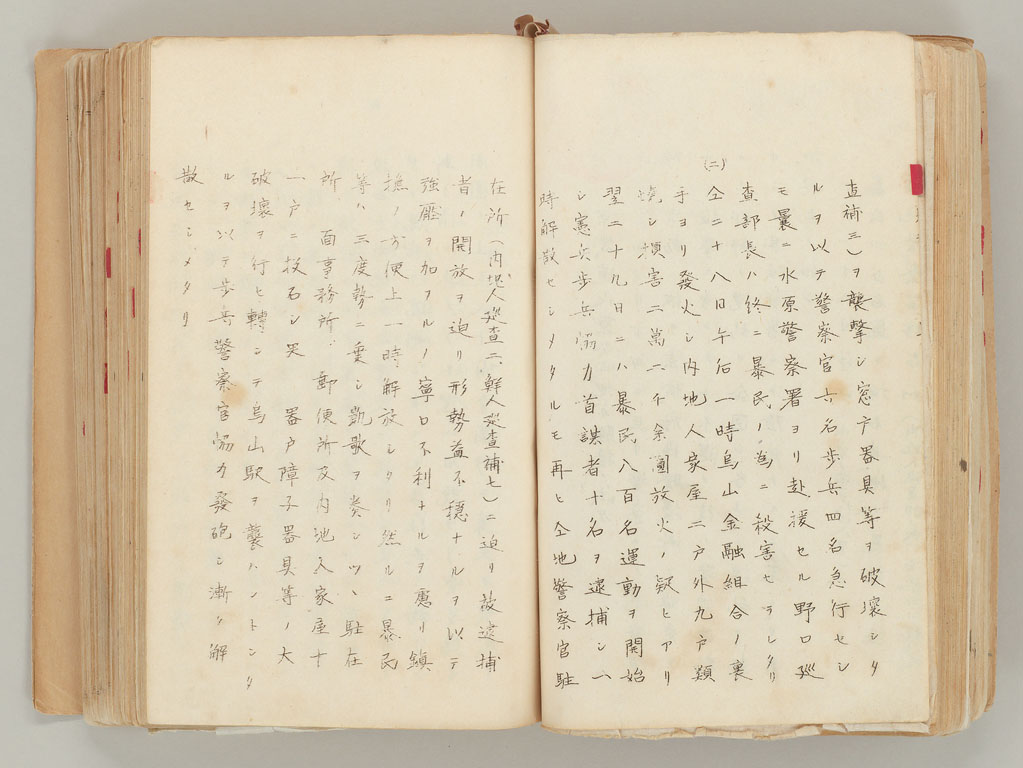 査補三)ヲ襲撃シ窓戸器具等ヲ破壊シタ
ルヲ以テ警察官六名歩兵四名急行セシ
モ曩ニ水原警察署ヨリ赴援セル野口巡
査部長ハ終ニ暴民ノ為ニ殺害セラレタリ
(二)
仝二十八日午后一時烏山金融組合ノ裏
手ヨリ發火シ内地人家屋二戸外九戸類
焼シ損害二萬二千余圓放火ノ疑ヒアリ
翌二十九日ニハ暴民八百名運動ヲ開始
シ憲兵歩兵協力首謀者十名ヲ逮捕シ一
時解散セシメタルモ再ヒ仝地警察官駐
在所(内地人巡査二、鮮人巡査補七)ニ迫リ被逮捕
者ノ開放ヲ迫リ形勢益不穏ナルヲ以テ
強壓ヲ加フルノ寧ロ不利ナルヲ慮リ鎮
撫ノ方便上一時解放シタリ然ルニ暴民
等ハ三度勢ニ乗シ凱歌ヲ奏シツヽ駐在
所、面事務所、郵便所及内地人家屋十
一戸ニ投石シ 器戸障子器具等ノ大
破壊ヲ行ヒ轉シテ烏山駅ヲ襲ハントシタ
ルヲ以テ歩兵警察官協力發砲シ漸ク解
散セシメタリ